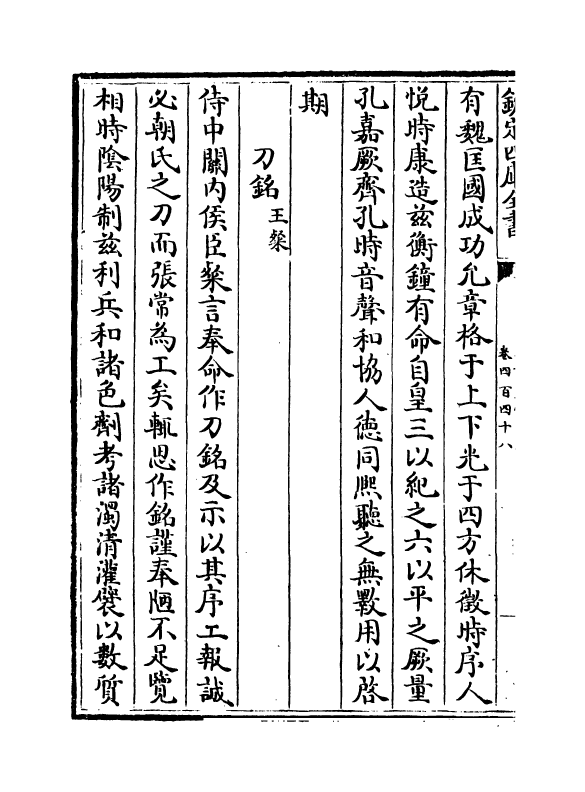 欽定四庫全書
卷四百四十八
有魏匡國成功允章格于上下光于四方休徵時序人
悅時康造兹衡鐘有命自皇三以紀之六以平之厥量
孔嘉厥齊孔時音聲和協人德同熈聽之無斁用以啓
期
刀銘王粲
侍中關内侯臣粲言奉命作刀銘及示以其序工報誠
必朝氏之刀而張常為工矣輒思作銘謹奉陋不足覽
相時隂陽制兹利兵和諸色劑考諸濁清灌襞以數質